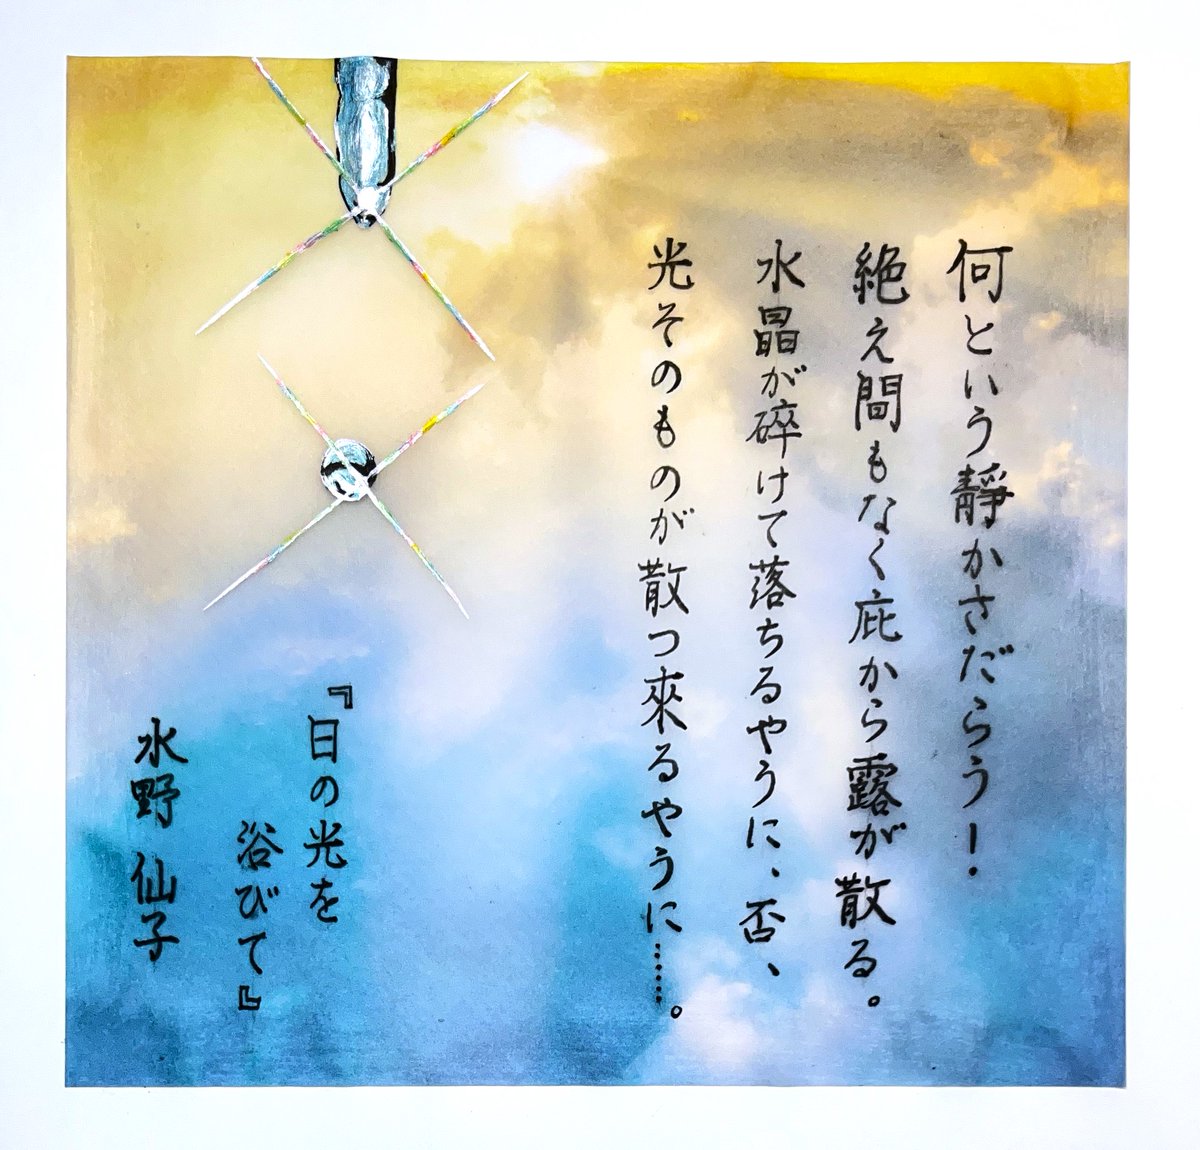 何という靜かさだらう！
絶え間もなく庇から露が散る。
水晶が碎けて落ちるやうに、否、
光そのものが散つ來るやうに……。
『日の光を
浴びて』
水野 仙子